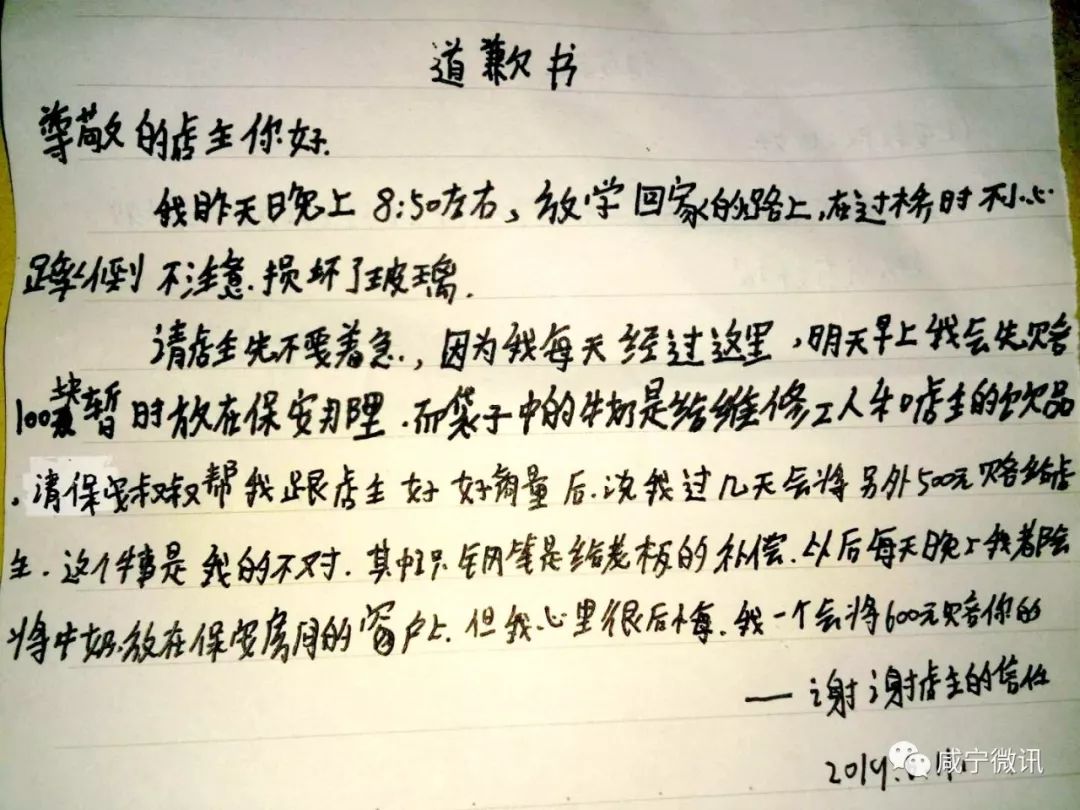 道歉书
尊敬的店主你好.
我昨天晚上8:50左右,放学回家的路上,在过桥时不小心
摔倒不注意.损坏了玻璃.
请店主先不要着急.,因为我每天经过这里,明天早上我会先赔
100块暂时放在保安那里.而袋子中的牛奶是给维修工人和店主的饮品
.请保安叔叔帮我跟店主好好商量后.说我过几天会将另外500元赔给店
主.这个件事是我的不对.其中2只钢笔是给老板的补偿.以后每天晚上我都会
将牛奶放在保安房间的窗户上.但我心里很后悔.我一个会将600元赔你的
—谢谢店主的信任
2019.
咸宁微讯